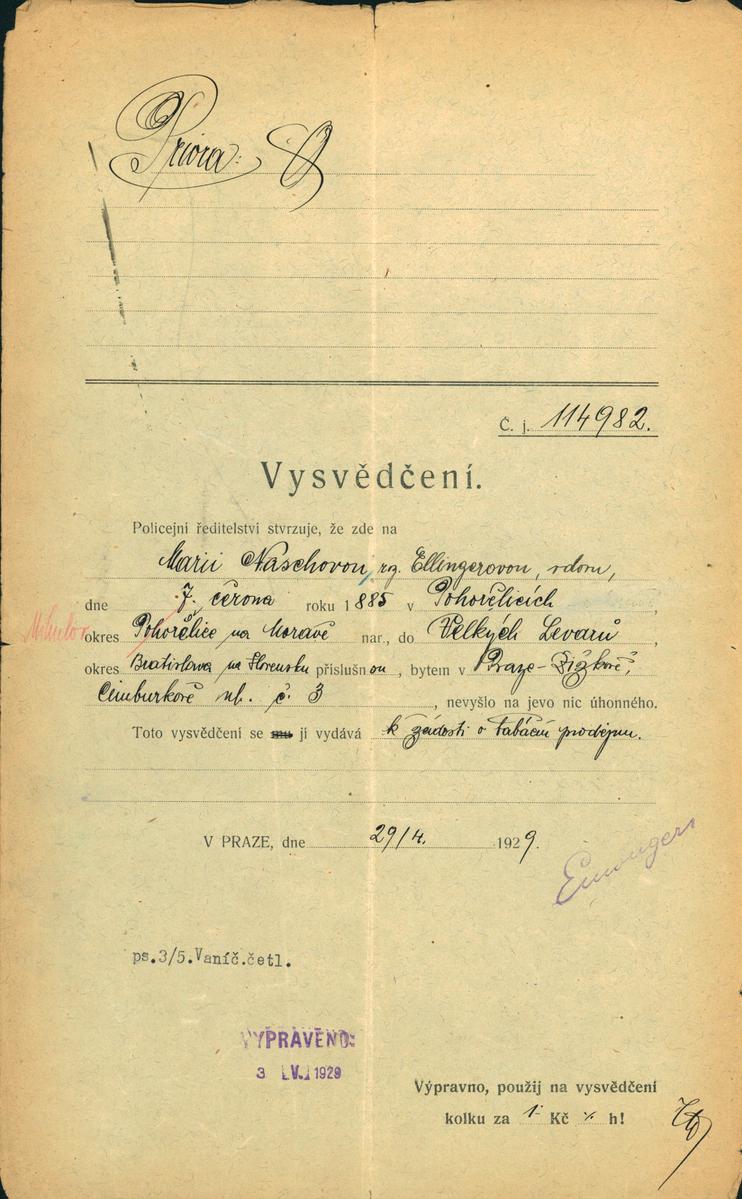 Priora:
Č. j. 114982.
Vysvědčení.
Policejní ředitelství stvrzuje, že zde na
Marii Naschovou, roz. Ellingerovou, vdovu,
dne 7. června roku 1885 v Pohořelicích
Mikulov
okres Pohořelice na Moravě nar., do Velkých Levarů
okres Bratislava na Slovensku příslušnou, bytem v Praze-Žižkově,
Cimburkově ul. č. 3, nevyšlo na jevo nic úhonného.
Toto vysvědčení se mu jí vydává k žádosti o tabáční prodejnu.
V PRAZE, dne 29/4. 1929.
ps.3/5.Vaníč.četl.
VYPRAVENO:
3 V. 1929
Výpravno, použij na vysvědčení
kolku za 1 Kč h!